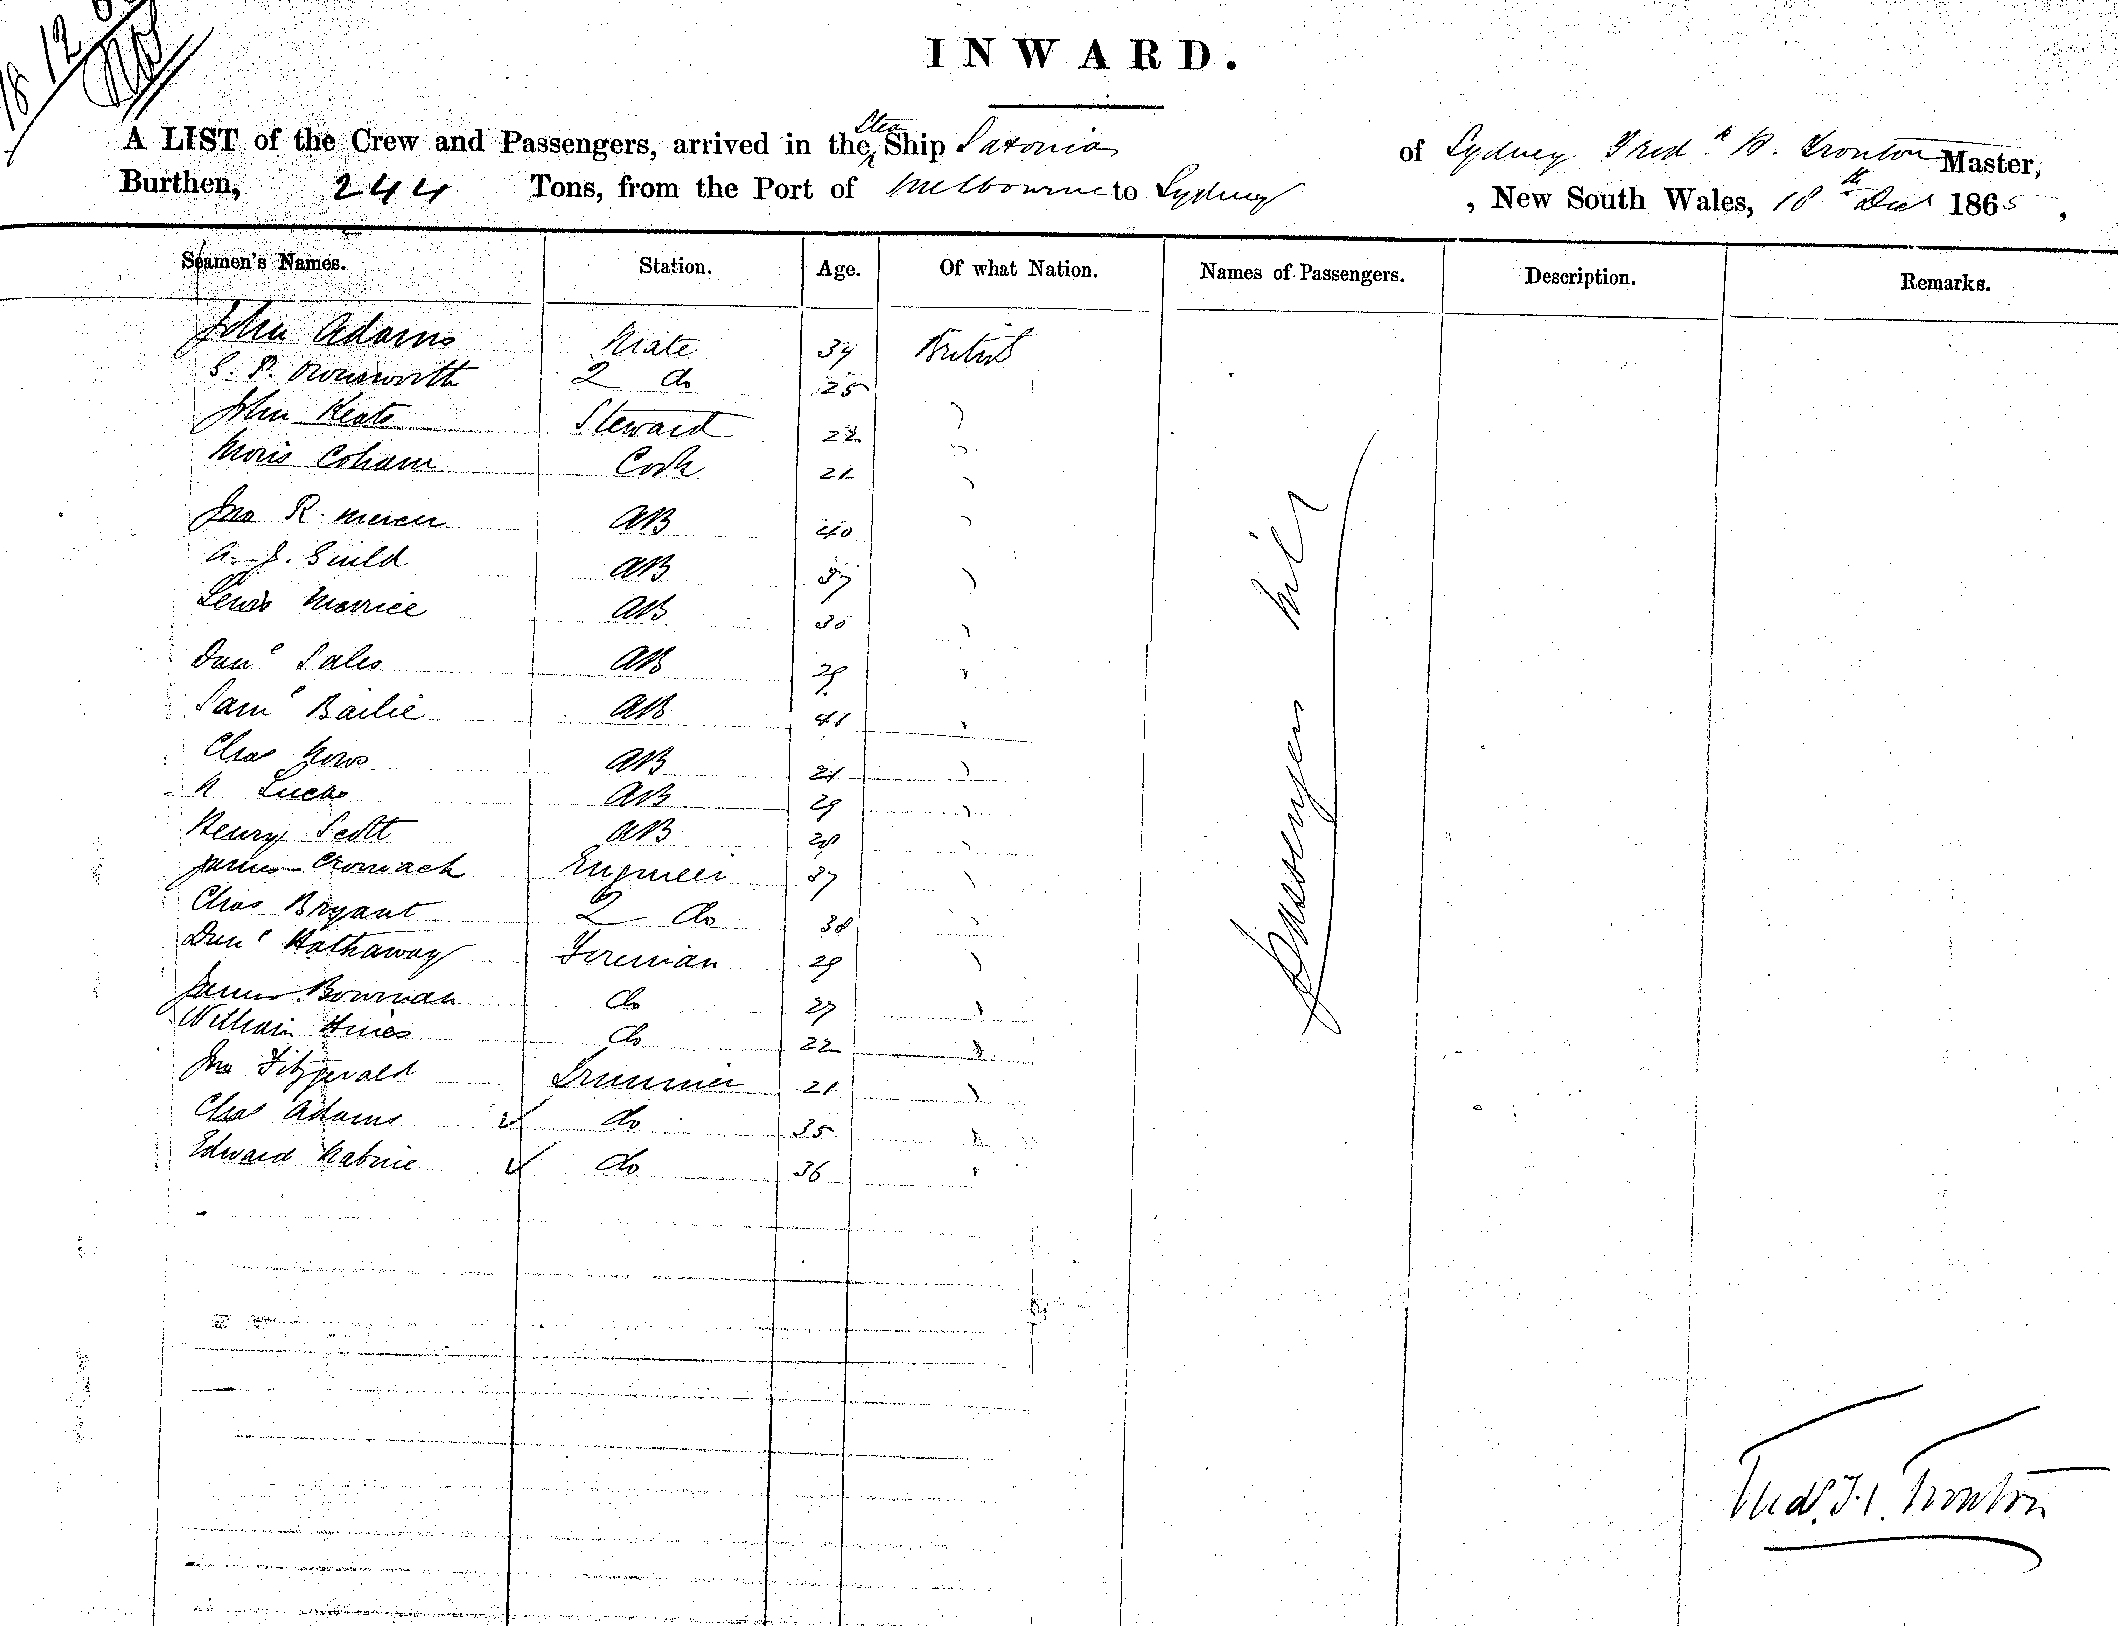 18 12 6
INWARD.
A LIST of the Crew and Passengers, arrived in the Stea Ship Saxonia of Sydney Fredk H. Tronton Master,
Burthen, 244 Tons, from the Port of Melbourne to Sydney, New South Wales, 18th Decr 1865,
Seamen's Names. Station. Age. Of what Nation. Names of Passengers. Description. Remarks.
John Adams Mate 39 British
S. P. 2 do 25 "
John Keats Steward 22 "
Moris Coham Cook 21 "
Jno R. Mercer AB 40 "
A. J. Guild AB 37 "
Lewis Merrice AB 30 "
Danl Sales AB 29 "
Saml Bailie AB 41 "
Chas AB 21 "
Lucas AB 29 "
Henry Scott AB "
James Cromach Engineer 37 "
Chas Bryant 2 do 38 "
Danl Hathaway Fireman 29 "
James Bowman do 27 "
William Hines do 22 "
Jno Fitzgerald Trimmer 21 "
Chas Adams ✓ do 35 "
Edward ✓ do 36 "
Passengers Nil
Fredk H. Tronton